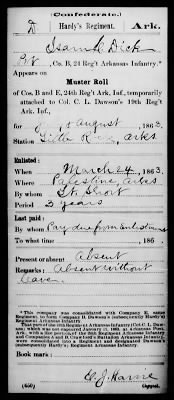 (Confederate.)
D Hardy's Regiment. Ark.
Isam K Dick
Pvt, Co. B, 24 Reg't Arkansas Infantry.*
Appears on
Muster Roll
of Cos. B and E, 24th Reg't Ark. Inf., temporarily
attached to Col. C. L. Dawson's 19th Reg't
Ark. Inf.,
for July & August, 1863.
Station Little Rock, Arks
Enlisted:
When March 24, 1863.
Where Palestine, Arks
By whom Lt. Short
Period 3 years
Last paid:
By whom Pay due from Enlistment
To what time , 186 .
Present or absent Absent
Remarks: Absent without
Leave.
*This company was consolidated with Company E, same
Regiment, to form Company D, Dawson's (subsequently Hardy's)
Regiment Arkansas Infantry.
Book mark:
(650) Copyist.